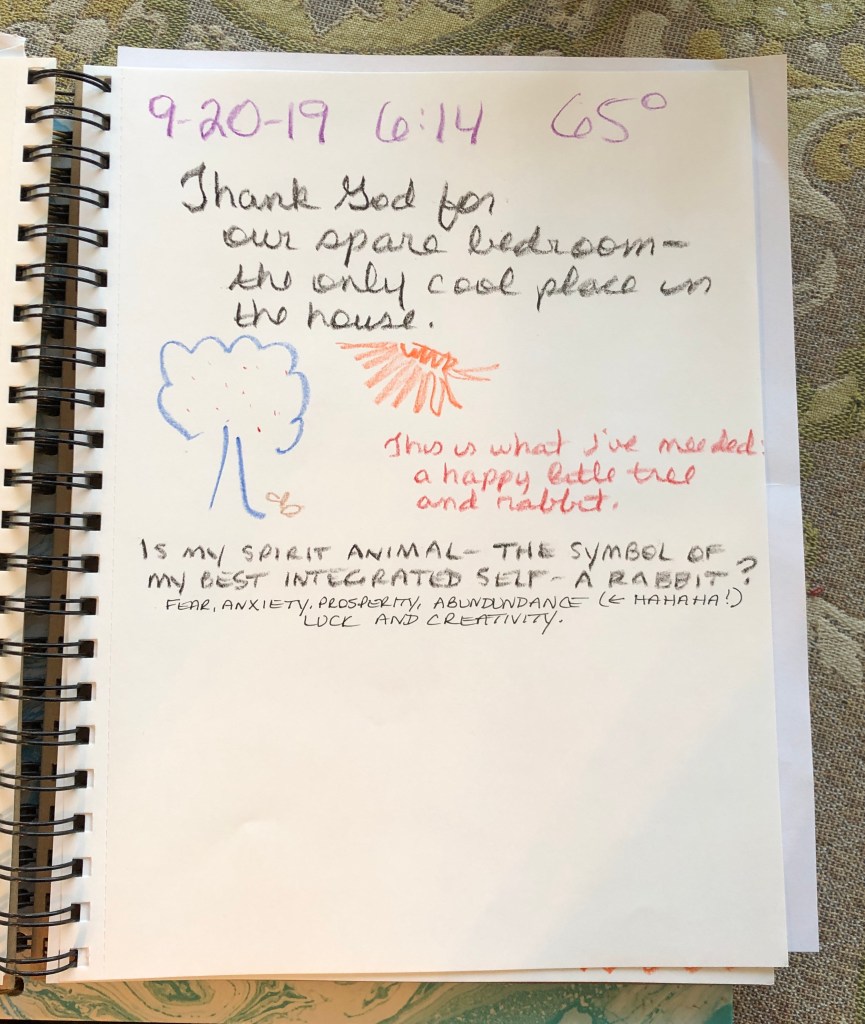 9-20-19 6:14 65°
Thank God for
our spare bedroom-
the only cool place in
the house.
This is what I've needed:
a happy little tree
and rabbit.
IS MY SPIRIT ANIMAL - THE SYMBOL OF
MY BEST INTEGRATED SELF - A RABBIT?
FEAR, ANXIETY, PROSPERITY, ABUNDUNDANCE (← HAHAHA!)
LUCK AND CREATIVITY.